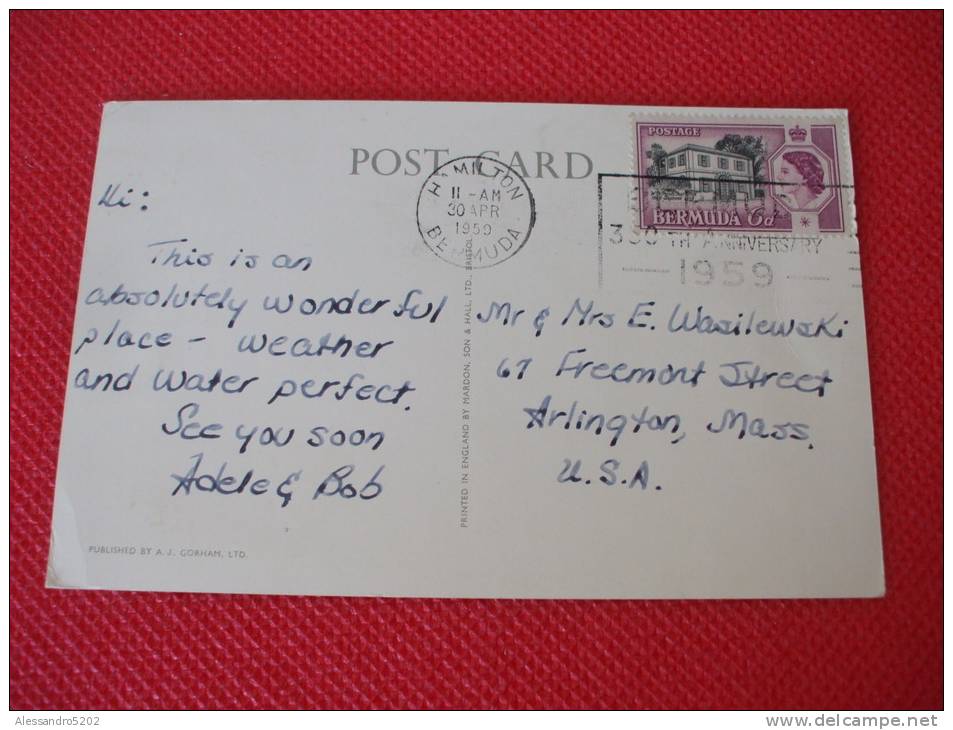 POST CARD
HAMILTON
11-AM
30 APR
1959
BERMUDA
POSTAGE
BERMUDA 6d
350TH ANNIVERSARY
1959
Hi:
This is an
absolutely wonderful
place - weather
and water perfect.
See you soon
Adele & Bob
PUBLISHED BY A. J. GORHAM, LTD.
PRINTED IN ENGLAND BY MARDON, SON & HALL, LTD., BRISTOL
Mr & Mrs E. Wasilewski
67 Freemont Street
Arlington, Mass.
U.S.A.
Alessandro5202
www.delcampe.net